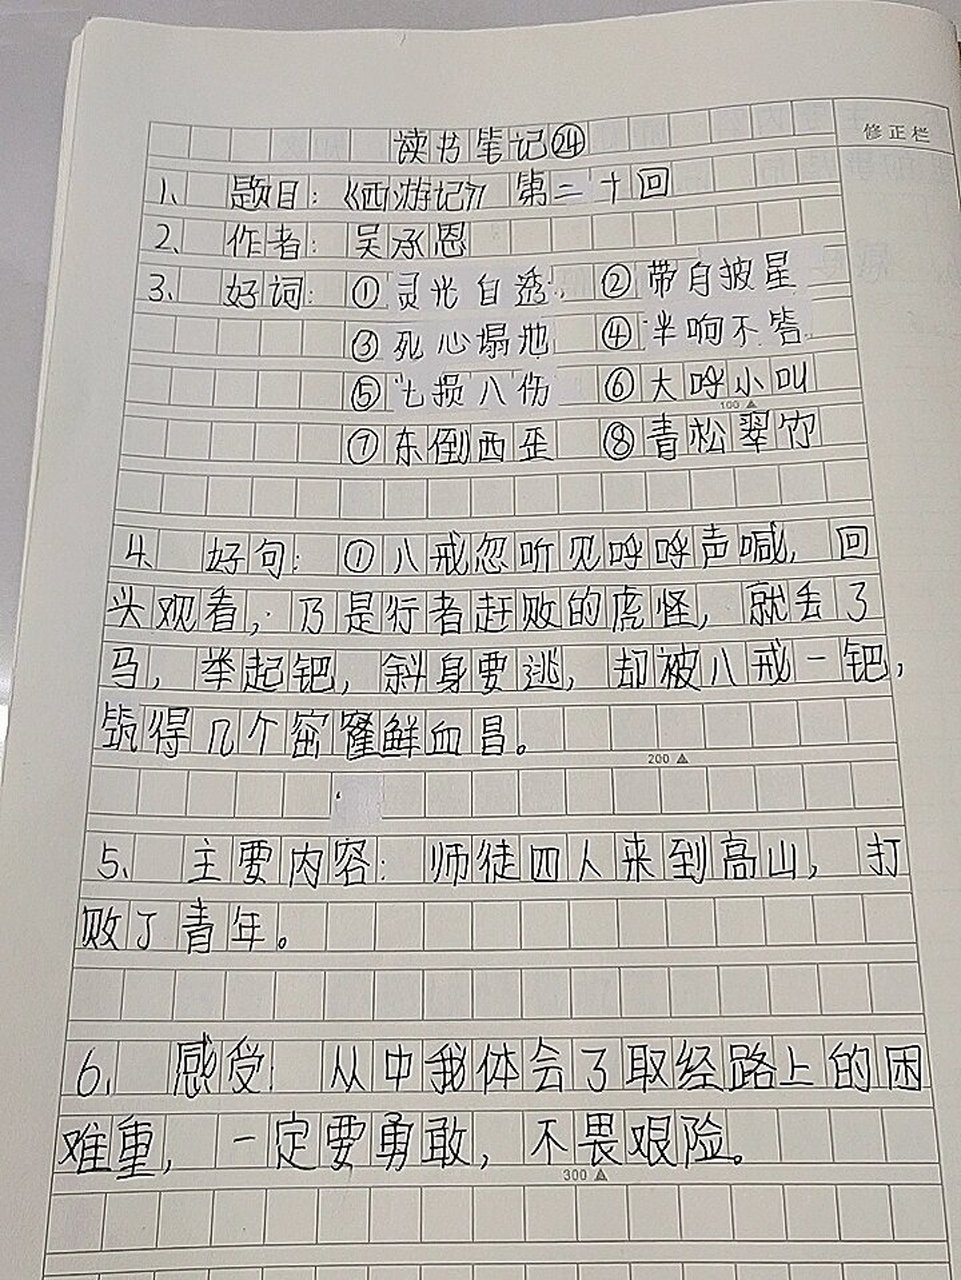 读书笔记㉔
修正栏
1、 题目：《西游记》 第二十回
2、 作者：吴承恩
3、 好词：①灵光自透 ②带自披星
③死心塌地 ④半响不答
⑤七损八伤 ⑥大呼小叫
100
⑦东倒西歪 ⑧青松翠竹
4、 好句：①八戒忽听见呼呼声喊，回
头观看，乃是行者赶败的虎怪，就丢了
马，举起钯，斜身要逃，却被八戒一钯，
筑得几个密窿鲜血冒。
200
5、 主要内容：师徒四人来到高山，打
败了青年。
6、 感受：从中我体会了取经路上的困
难重，一定要勇敢，不畏艰险。
300